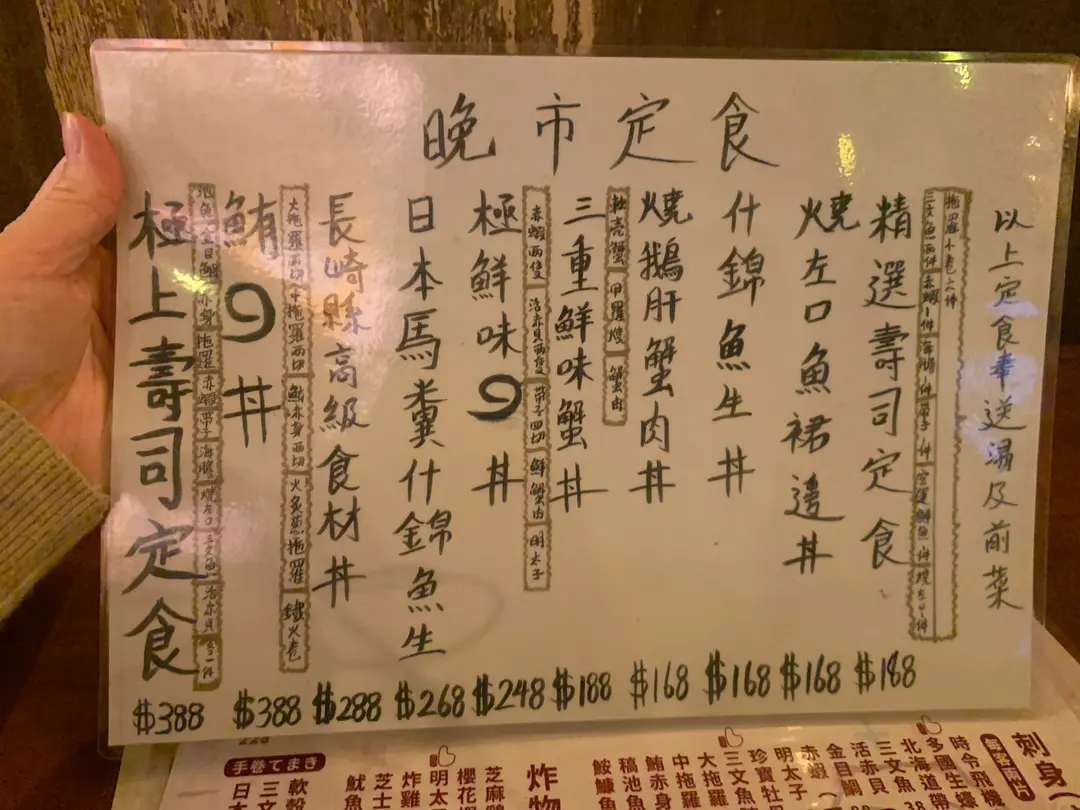 晚市定食
以上定食奉送湯及前菜
拖羅小卷六件
三文魚兩件 赤蝦1件 海膽1件 帶子1件 左口1件
精選壽司定食
$188
燒左口魚裙邊丼
$168
什錦魚生丼
$168
燒鵝肝蟹肉丼
$168
松葉蟹 甲羅燒 蟹肉
三重鮮味蟹丼
$188
赤蝦兩隻 活赤貝兩隻 帶子四切 鮮蟹肉 明太子
極鮮味の丼
$248
日本馬糞什錦魚生
$268
長崎縣高級食材丼
$288
大拖羅兩切 中拖羅兩切 鮪赤身兩切 火炙蔥拖羅 鐵火卷
鮪の丼
$388
池魚 金目鯛 赤身 拖羅 赤蝦 帶子 海膽 燒左口 三文魚 活赤貝 各一件
極上壽司定食
$388
刺身
每客兩片
時令飛機
多國生蠔
北海道帶
三文魚
活赤貝
金目鯛
赤蝦
明太子
珍寶牡丹
三文魚
大拖羅
中拖羅
鮪赤身
稿池魚
鮟鱇魚
炸物
芝麻雞
櫻花蝦
明太子
炸雞
芝士
魷魚
手卷てまき
軟殼
三文
日本